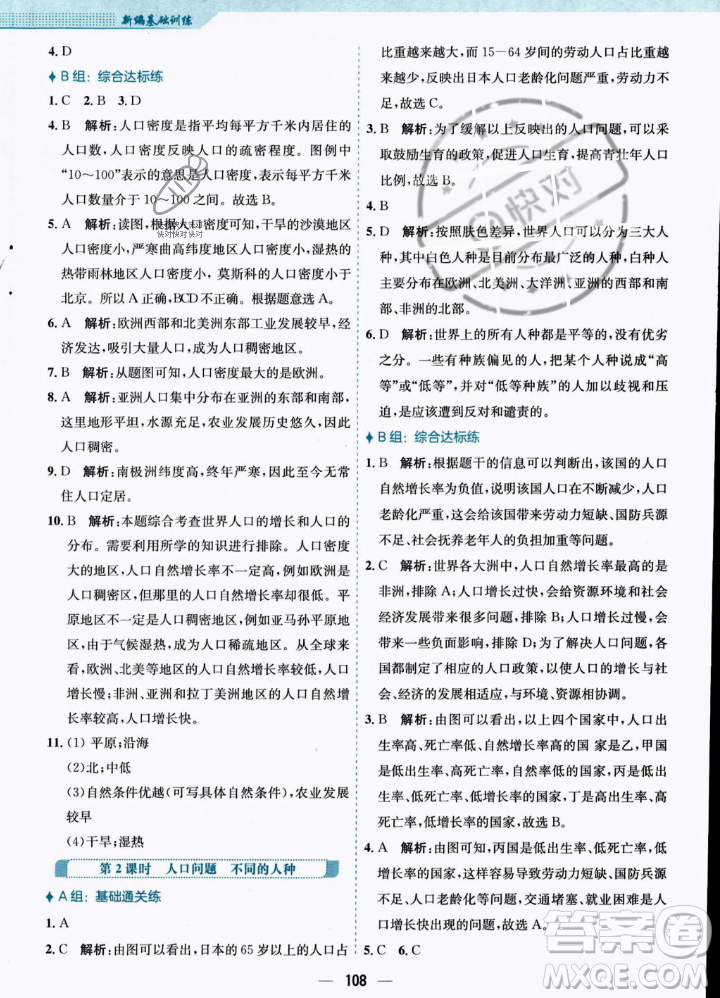 新编基础训练
4. D
B 组：综合达标练
1. C　2. B　3. D
4. B　解析：人口密度是指平均每平方千米内居住的
人口数，人口密度反映人口的疏密程度。图例中
“10～100”表示的意思是人口密度，即每平方千米
人口数量介于 10～100 之间。故选 B。
5. A　解析：读图，根据人口密度可知，干旱的沙漠地区
人口少，严寒曲高纬度地区人口少，湿热的
热带雨林地区人口密度小，莫斯科的人口密度小于
北京。所以 A 正确，BCD 不符合题意。故选 A。
6. A　解析：欧洲西部和北美洲东部工业发展早，经
济发达，吸引大量人口，人口稠密。
7. B　解析：从题图可知，人口密度最大的是欧洲。
8. A　解析：亚洲人口集中分布在亚洲的东部和南部，
这里地形平坦，水源充足，农业发展历史悠久，人
口稠密。
9. D　解析：南极洲纬度高，终年严寒，因此没有
人口定居。
10. B　解析：本题综合考查世界人口的增长和人口的
分布。需要利用所学的知识进行排除。人口密度
大的地区，人口自然增长率不一定高，例如欧洲是
人口密集地区，但那里的人口自然增长率很低。平
原地区不一定是人口稠密地区，例如亚马孙平原地
区，由于气候湿热，为人口稀疏地区。从全球来
看，欧洲、北美洲和大洋洲的人口增长率低，人口
增长慢；非洲、亚洲和拉丁美洲地区的人口自然增长
率较高，人口增长快。
11. (1) 平原；沿海
(2)北；中低
(3)自然条件优越(可写具体自然条件)，农业发展
较早
(4)干旱；湿热
第 2 课时　人口问题　不同的人种
A 组：基础通关练
1. A
2. C　解析：由图可以看出，日本的 65 岁以上的人口占
比重越来越大，而 15－64 岁间的劳动人口占比重越
来越少，反映出日本人口老龄化问题严重，劳动力不
足，故选 C。
3. B　解析：为了缓解以上反映的人口问题，可以采
取鼓励生育的政策，提高生育率，提高青壮年人口
比例，故选 B。
4. B
5. D　解析：按照肤色差异，世界人口可以分为三大人
种，其中白色人种是目前世界分布最广泛的人种，
主要分布在欧洲、北美洲、大洋洲、亚洲的西部和南
部、非洲的北部。
6. D　解析：世界上的所有人种都是平等的，没有优劣
之分。一些有种族偏见的人，把某个种族说成“高
等”或“低等”，并对“低等种族”的人加以歧视和压
迫，是应该遭到反对和谴责的。
B 组：综合达标练
1. B　解析：根据题干的信息可以判断出，该国的人口
自然增长率为负值，说明该国的人口在不断减少，人
口老龄化严重，这会给该国带来劳动力短缺、国防兵源
不足、社会抚养老年人口的负担加重等问题。
2. C　解析：世界各大洲中，人口自然增长率最高的是
非洲，排除 A；人口增长过快，会给资源环境和社会
经济的发展带来影响，排除 B；人口增长过慢，会
带来劳动力不足等问题，排除 D；为了解决人口问题，各
国都制定了相应的人口政策，使人口的增长与社
会、经济的发展相适应，与环境、资源相协调。
3. B　解析：由图可以看出，以上四个国家中，人口出
生率高、死亡率低、自然增长率高的国 家是乙，甲国
是低出生率、低死亡率、低增长率的国家，丙是高出
生率、高死亡率、低增长率的国家，丁是低出生率、
低死亡率、负增长的国家，故选 B。
4. A　解析：由图可以看出，甲国是低出生率、低死亡
率、低自然增长率的国家，容易出现劳动力短缺、人
口老龄化的问题；乙国为人口自然增长率高的国家，
人口增长快，容易出现住房紧张、交通拥挤、就业困
难等问题；丁国人口出现了负增长，不会因人口增
长快出现以上的问题，故选 A。
5. C　6. C
108
快对
快对快对快对
答案圈
MXQE.COM